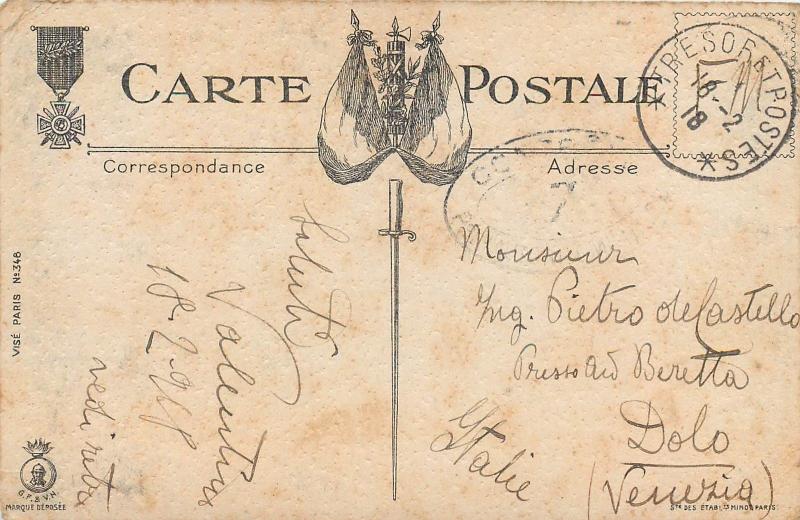 CARTE POSTALE
Correspondance
Adresse
TRESOR ET POSTES
18-2
18
7
VISÉ PARIS No 348
Saluti
Valentina
18-2-918
vedi retro
Monsieur
Ing. Pietro de Castello
Presso Beretta
Dolo
(Venezia)
Italie
G.F. & V.H.
MARQUE DÉPOSÉE
Sté DES ÉTABLts MINOT PARIS